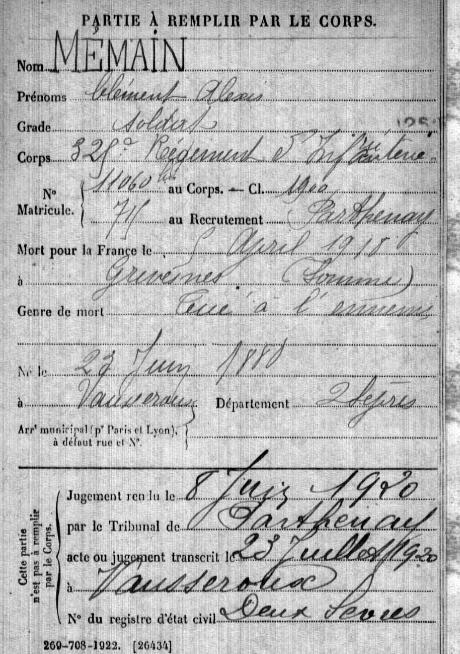 PARTIE À REMPLIR PAR LE CORPS.
Nom MÉMAIN
Prénoms Clément Alexis
Grade Soldat
Corps 325e Régiment d'Infanterie
N° Matricule. 11060 au Corps. — Cl. 1900
au Recrutement Parthenay
Mort pour la France le 5 April 1918
à Grivesnes (Somme)
Genre de mort Tué à l'ennemi
Né le 23 Juin 1880
à Vausseroux Département 2 Sèvres
Arrt municipal (pr Paris et Lyon),
à défaut rue et N°.
Cette partie n'est pas à remplir par le Corps.
Jugement rendu le 8 Juin 1920
par le Tribunal de Parthenay
acte ou jugement transcrit le 23 Juillet 1920
à Vausseroux
N° du registre d'état civil Deux Sèvres
269-708-1922. [26434]